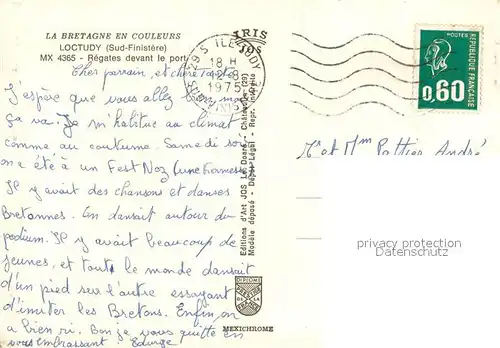 LA BRETAGNE EN COULEURS
LOCTUDY (Sud-Finistère)
MX 4365 - Régates devant le port
IRIS
JOS
18 H
12-8
1975
POSTES
REPUBLIQUE FRANÇAISE
0,60
Cher parrain, et chère tante
J'espère que vous allez bien, moi
ça va. Je m'habitue au climat
comme au coutume. Samedi soir
on a été à un Fest Noz (une kermesse)
Il y avait des chansons et danses
Bretonnes. On dansait autour du
podium. Il y avait beaucoup de
jeunes, et toute le monde dansait
d'un pied sur l'autre essayant
d'imiter les Bretons. Enfin, on
a bien ri. Bon je vous quitte en
vous embrassant Edwige
Mr et Mme Pottier André
Editions d'Art JOS Le Doaré - Châteaulin (29)
Modèle déposé - Dépôt Légal - Repr. interdite
DIPLOME
PRESTIGE
DE LA
FRANCE
MEXICHROME
privacy protection
Datenschutz